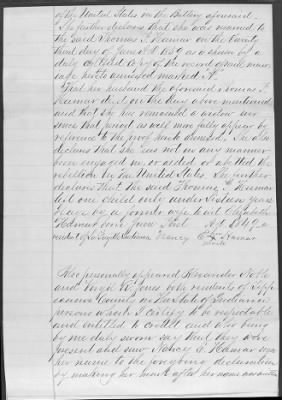 of the United States on the Battery aforesaid
She further declares that she was married to
the said Thomas J. Hamar on the twenty
third day of June A.D. 1859 as is shown by a
duly certified copy of the record of said marri-
age hereto annexed marked A.
That her husband the aforesaid Thomas J.
Hamar died on the day above mentioned
and that she has remained a widow ever
since that period as will more fully appear by
reference to the proof hereto annexed. She also
declares that she has not in any manner
been engaged in, or aided or abetted the
rebellion in the United States. She further
declares that the said Thomas J. Hamar
left one child only under sixteen years
of age by a former wife to wit Elizabeth
Hamar born June A.D. 1849, a
resident of La Fayette Indiana Nancy C. Hamar
her mark
Also personally appeared Alexander Stoble
and Hugh H. Jones both residents of Tippe
canoe County in the State of Indiana
persons whom I certify to be respectable
and entitled to credit and who being
by me duly sworn say that they were
present and saw Nancy C. Hamar sign
her name to the foregoing declaration
by making her mark after her name was written